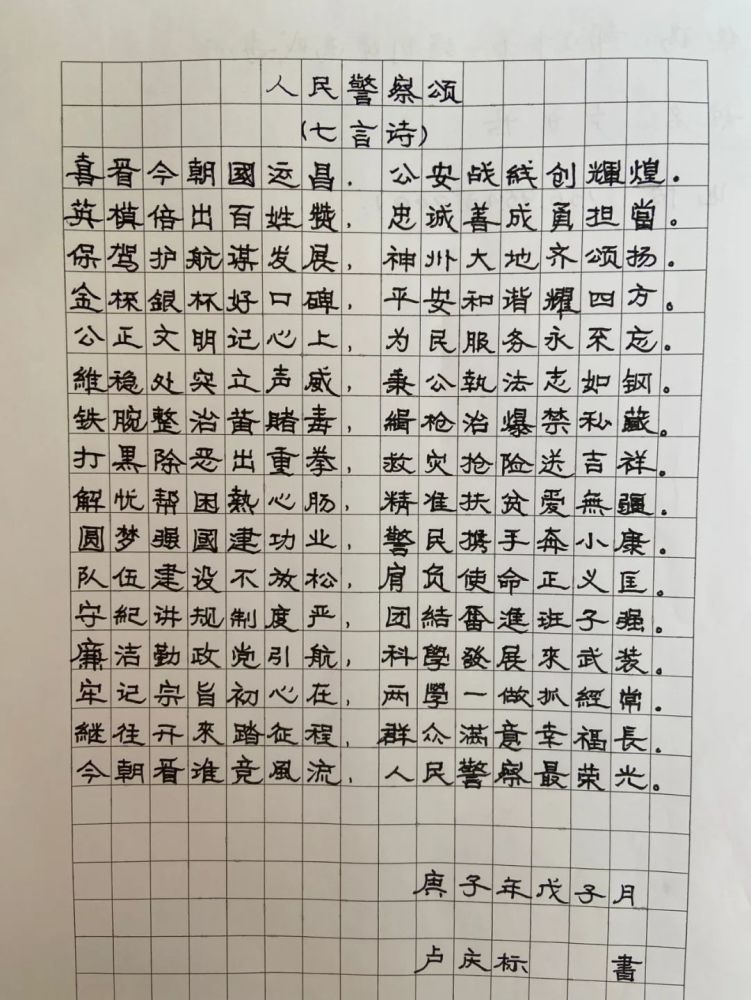 人民警察颂
(七言诗)
喜看今朝國运昌，公安战线创輝煌。
英模倍出百姓赞，忠诚善成勇担當。
保驾护航谋发展，神州大地齐颂扬。
金杯銀杯好口碑，平安和谐耀四方。
公正文明记心上，为民服务永不忘。
維稳处突立声威，秉公執法志如钢。
铁腕整治黄赌毒，緝枪治爆禁私藏。
打黑除恶出重拳，救灾抢险送吉祥。
解忧帮困熱心肠，精准扶贫爱無疆。
圆梦强國建功业，警民携手奔小康。
队伍建设不放松，肩负使命正义匡。
守紀讲规制度严，团結奋進班子强。
廉洁勤政党引航，科學發展來武装。
牢记宗旨初心在，两學一做抓經常。
継往开來踏征程，群众滿意幸福長。
今朝看谁竞風流，人民警察最荣光。
庚子年戊子月
卢庆标 書